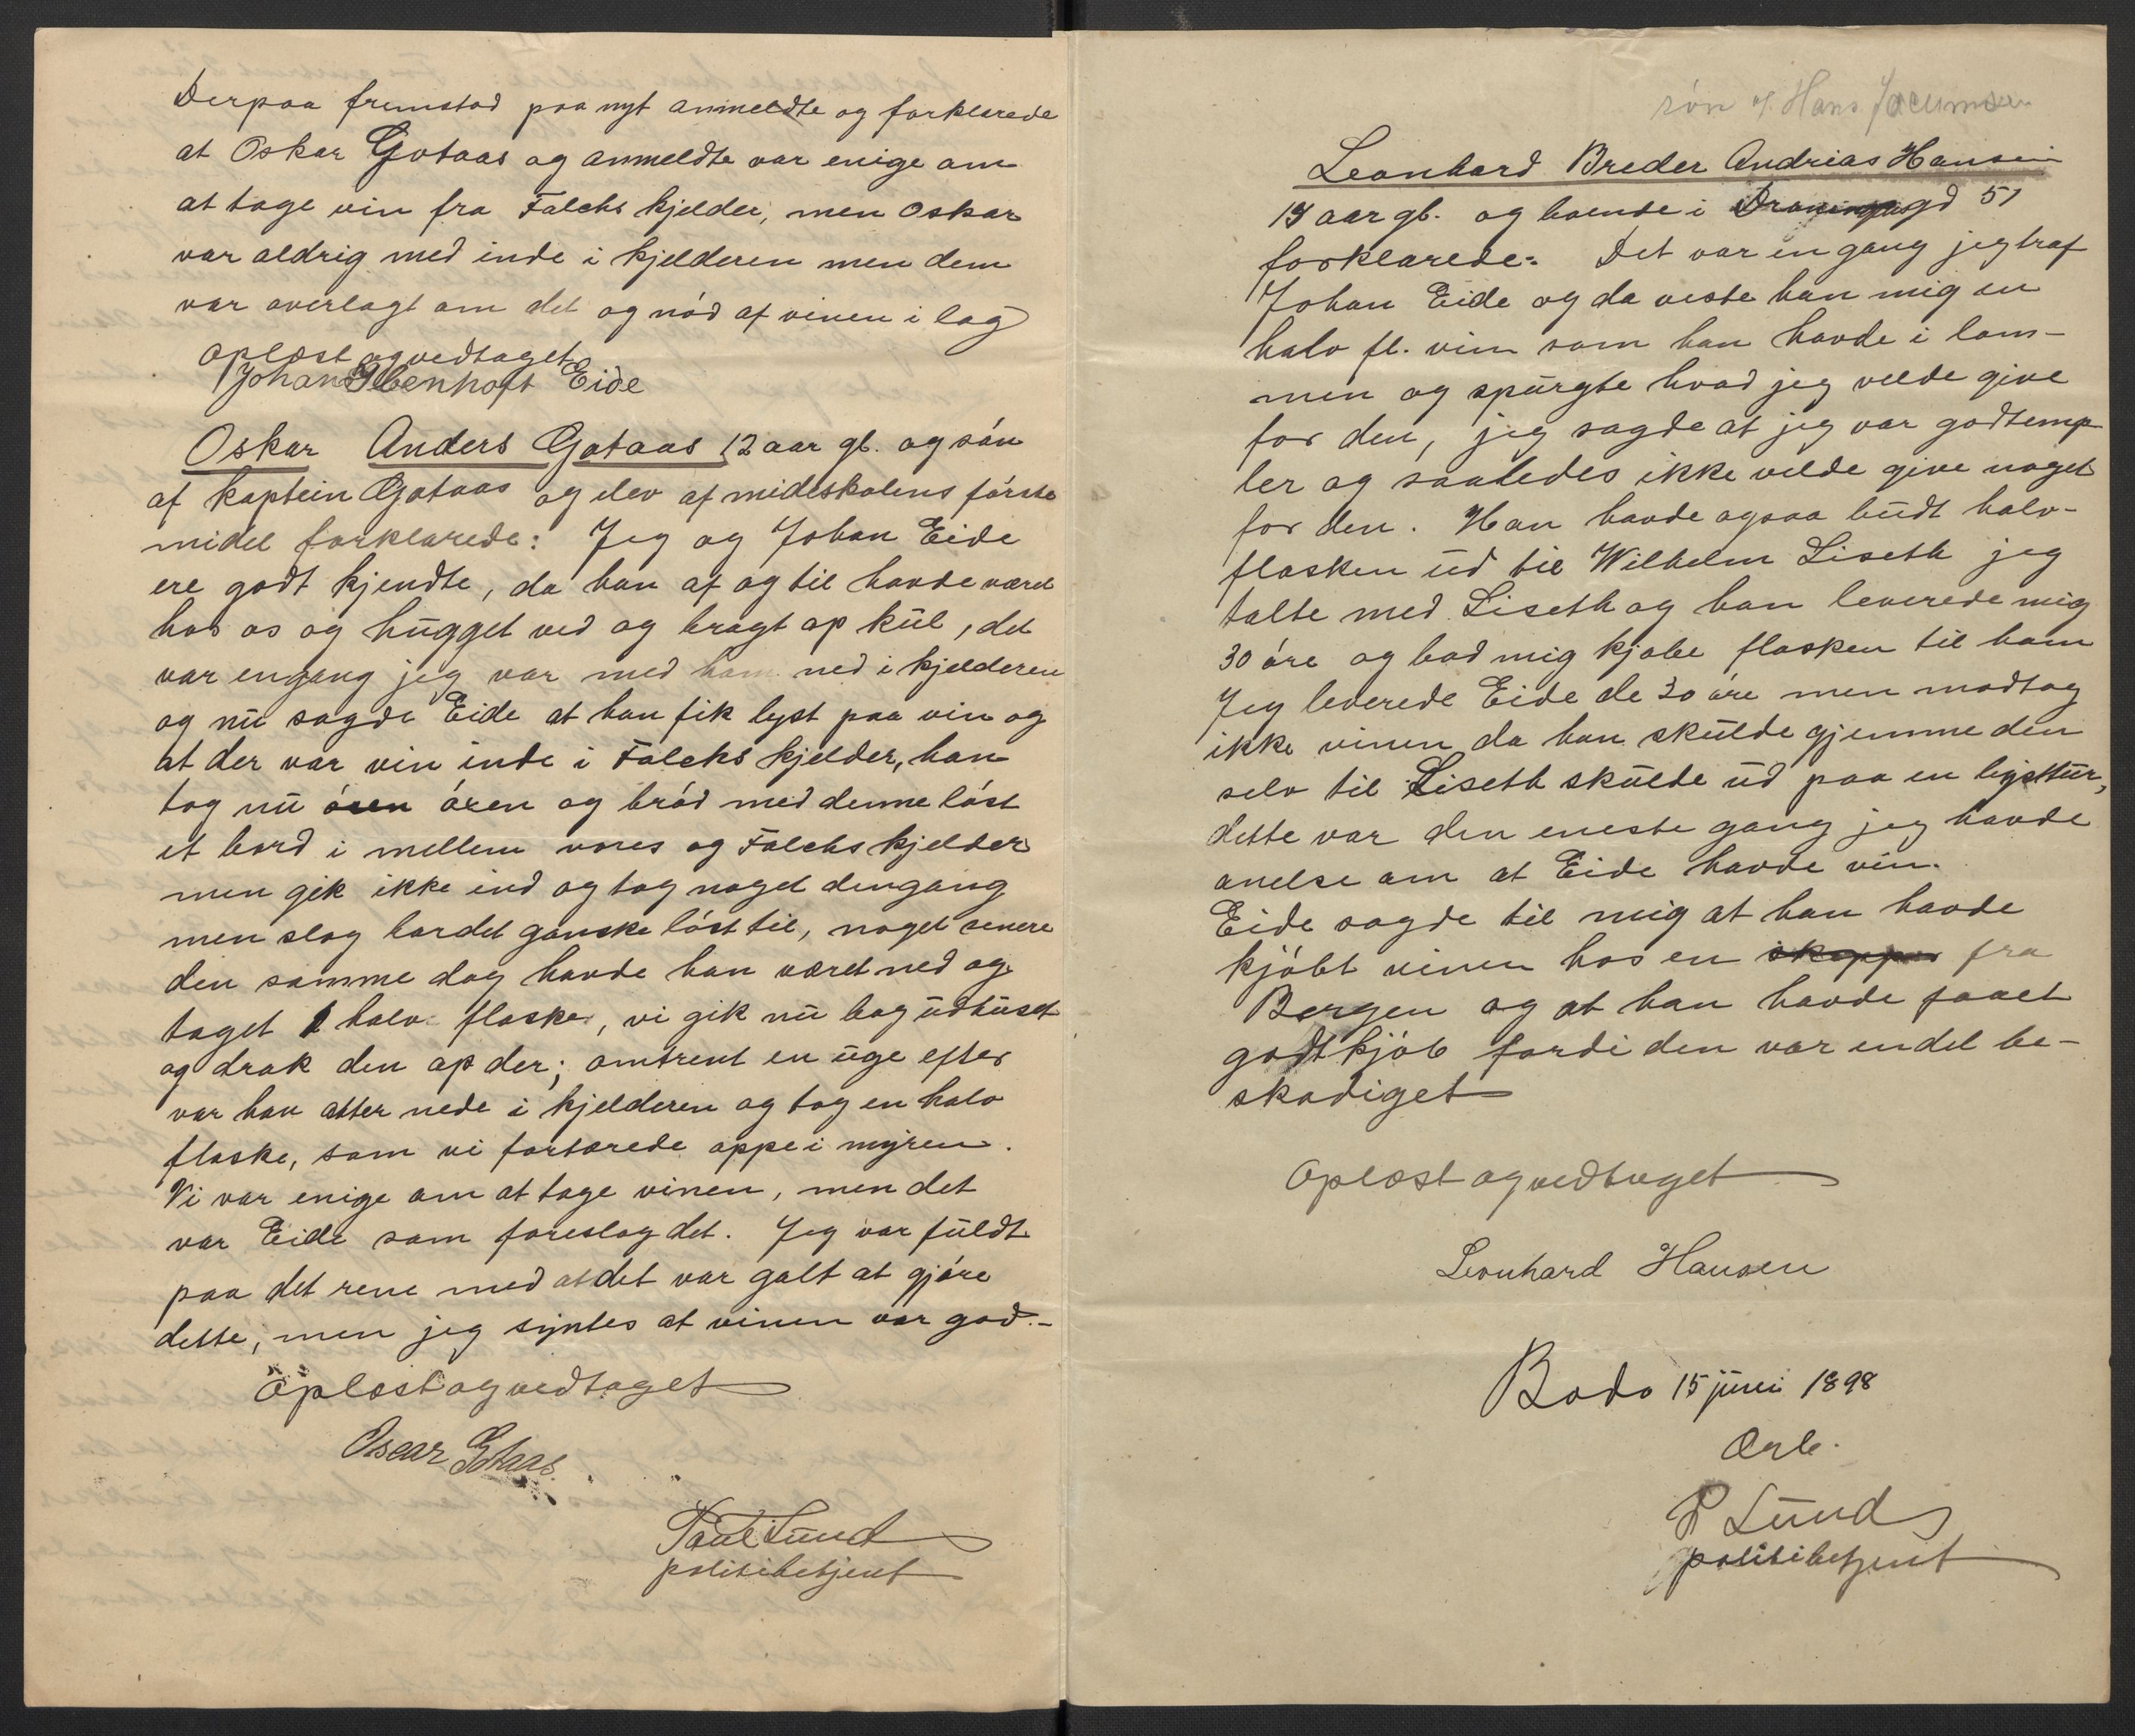 Derpaa fremstod paa nyt anmeldte og forklarede
at Oskar Gotaas og anmeldte var enige om
at tage vin fra Falchs kjelder, men Oskar
var aldrig med inde i kjelderen men dem
var overlagt om det og nød af vinen i lag
oplæst og vedtaget
Johan Ibenhoft Eide
Oskar Anders Gotaas 12 aar gl. og søn
af kaptein Gotaas og elev af midelskolens første
midel forklarede: Jeg og Johan Eide
ere godt kjendte, da han af og til havde været
hos os og hugget ved og bragt op kul, det
var engang jeg var med ham ned i kjelderen
og nu sagde Eide at han fik lyst paa vin og
at der var vin inde i Falchs kjelder, han
tog nu øxen øxen og brød med denne løst
et bord i mellem vores og Falchs kjelder
men gik ikke ind og tog noget dengang
men slog bordet ganske løst til, noget senere
den samme dag havde han været ned og
taget 1 halv flaske, vi gik nu bag udhuset
og drak den op der; omtrent en uge efter
var han atter nede i kjelderen og tog en halv
flaske, som vi fortærede oppe i myren.
Vi var enige om at tage vinen, men det
var Eide som foreslog det. Jeg var fuldt
paa det rene med at det var galt at gjøre
dette, men jeg syntes at vinen var god.-
Oplæst og vedtaget
Oscar Gotaas.
Paul Lund
politibetjent
søn af Hans Jocumsen
Leonhard Breder Andrias Hansen
19 aar gl. og boende i Droningensgd 51
forklarede: Det var en gang jeg traf
Johan Eide og da veste han mig en
halv fl. vin som han havde i lom-
men og spurgte hvad jeg velde give
for den, jeg sagde at jeg var godtemp-
ler og saaledes ikke velde give noget
for den. Han havde ogsaa budt halv-
flasken ud til Wilhelm Liseth jeg
talte med Liseth og han leverede mig
30 øre og bad mig kjøbe flasken til ham
Jeg leverede Eide de 30 øre men modtog
ikke vinen da han skulde gjemme den
selv til Liseth skulde ud paa en lysttur,
dette var den eneste gang jeg havde
anelse om at Eide havde vin.
Eide sagde til mig at han havde
kjøbt vinen hos en skipper fra
Bergen og at han havde faaet
godt kjøb fordi den var endel be-
skadiget
Oplæst og vedtaget
Leonhard Hansen
Bodø 15 juni 1898
Ærb.
P Lund
politibetjent